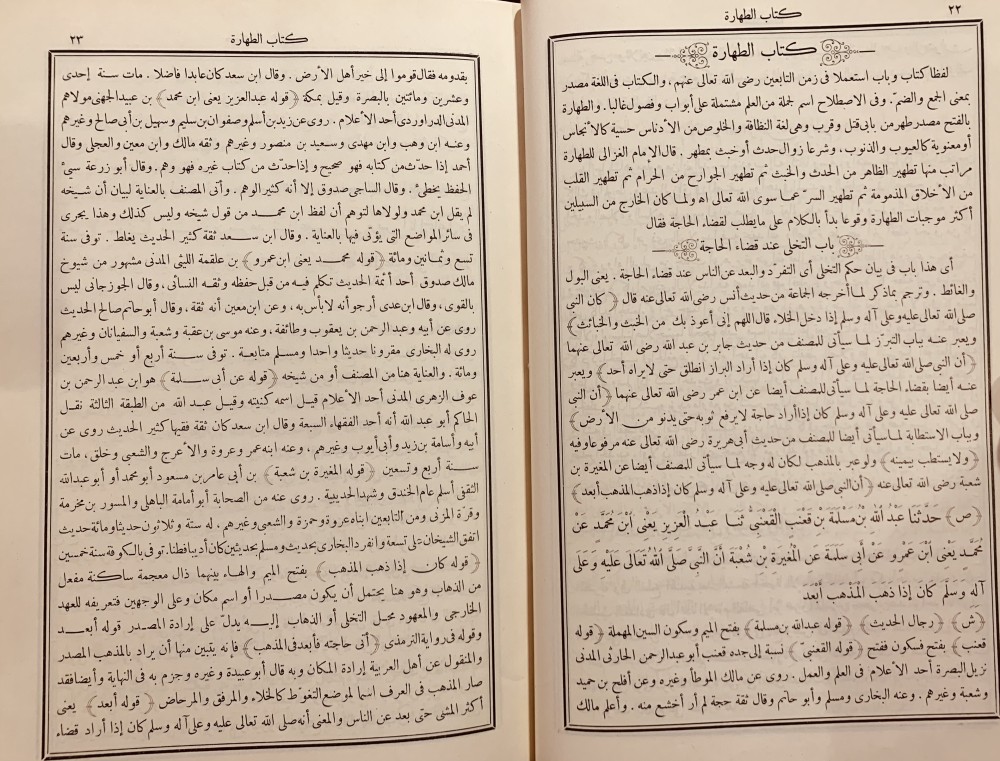 ٢٢
كتاب الطهارة
كتاب الطهارة
لفظا كتاب وباب استعملا فى زمن التابعين رضى الله تعالى عنهم ، والكتاب فى اللغة مصدر
بمعنى الجمع والضم . وفى الاصطلاح اسم لجملة من العلم مشتملة على أبواب وفصول غالبا . والطهارة
بالفتح مصدر طهر من بابى قتل وقرب وهى لغة النظافة والخلوص من الأدناس حسية كالأنجاس
أو معنوية كالعيوب والذنوب ، وشرعا زوال حدث أو خبث بمطهر . قال الإمام الغزالى للطهارة
مراتب منها تطهير الظاهر من الحدث والخبث ثم تطهير الجوارح من الحرام ثم تطهير القلب
من الأخلاق المذمومة ثم تطهير السر عما سوى الله تعالى اه ولما كان الخارج من السبيلين
أكثر موجبات الطهارة وقوعا بدأ بالكلام على ما يطلب لقضاء الحاجة فقال
باب التخلى عند قضاء الحاجة
أى هذا باب فى بيان حكم التخلى أى التفرد والبعد عن الناس عند قضاء الحاجة . يعنى البول
والغائط . وترجم بما ذكر لما أخرجه الجماعة من حديث أنس رضى الله تعالى عنه قال ﴿ كان النبى
صلى الله تعالى عليه وعلى آله وسلم إذا دخل الخلاء قال اللهم إنى أعوذ بك من الخبث والخبائث ﴾
ويعبر عنه بباب التبرز لما سيأتى للمصنف من حديث جابر بن عبد الله رضى الله تعالى عنهما
﴿ أن النبى صلى الله تعالى عليه وعلى آله وسلم كان إذا أراد البراز انطلق حتى لا يراه أحد ﴾ ويعبر
عنه أيضا بقضاء الحاجة لما سيأتى للمصنف أيضا عن ابن عمر رضى الله تعالى عنهما ﴿ أن النبى
صلى الله تعالى عليه وعلى آله وسلم كان إذا أراد حاجة لا يرفع ثوبه حتى يدنو من الأرض ﴾
وبباب الاستطابة لما سيأتى أيضا للمصنف من حديث أبى هريرة رضى الله تعالى عنه مرفوعا وفيه
﴿ ولا يستطب بيمينه ﴾ ولو عبر بالمذهب لكان له وجه لما سيأتى للمصنف أيضا عن المغيرة بن
شعبة رضى الله تعالى عنه ﴿ أن النبى صلى الله تعالى عليه وعلى آله وسلم كان إذا ذهب المذهب أبعد ﴾
﴿ ص ﴾ حَدَّثَنَا عَبْدُ اللهِ بْنُ مَسْلَمَةَ بْنِ قَعْنَبٍ الْقَعْنَبِىُّ ثَنَا عَبْدُ الْعَزِيزِ يَعْنِى ابْنَ مُحَمَّدٍ عَنْ
مُحَمَّدٍ يَعْنِى ابْنَ عَمْرٍو عَنْ أَبِى سَلَمَةَ عَنِ الْمُغِيرَةِ بْنِ شُعْبَةَ أَنَّ النَّبِىَّ صَلَّى اللهُ تَعَالَى عَلَيْهِ وَعَلَى
آلِهِ وَسَلَّمَ كَانَ إِذَا ذَهَبَ الْمَذْهَبَ أَبْعَدَ
﴿ ش ﴾ ﴿ رجال الحديث ﴾ ﴿ قوله عبد الله بن مسلمة ﴾ بفتح الميم وسكون السين المهملة ﴿ قوله
قعنب ﴾ بفتح فسكون ففتح ﴿ قوله القعنبى ﴾ نسبة إلى جده قعنب أبو عبد الرحمن الحارثى المدنى
نزيل البصرة أحد الأعلام فى العلم والعمل . روى عن مالك الموطأ وغيره وعن أفلح بن حميد
وشعبة وغيرهم . وعنه البخارى ومسلم وأبو حاتم وقال ثقة حجة لم أر أخشع منه . وأعلم مالك
كتاب الطهارة
٢٣
بقدومه فقال قوموا إلى خير أهل الأرض . وقال ابن سعد كان عابدا فاضلا . مات سنة إحدى
وعشرين ومائتين بالبصرة وقيل بمكة ﴿ قوله عبد العزيز يعنى ابن محمد ﴾ بن عبيد الجهنى مولاهم
المدنى الدراوردى أحد الأعلام . روى عن زيد بن أسلم وصفوان بن سليم وسهيل بن أبى صالح وغيرهم
وعنه ابن وهب وابن مهدى وسعيد بن منصور وغيرهم وثقه مالك وابن معين والعجلى وقال
أحمد إذا حدث من كتابه فهو صحيح وإذا حدث من كتاب غيره فهو وهم . وقال أبو زرعة سيئ
الحفظ يخطئ . وقال الساجى صدوق إلا أنه كثير الوهم . وأتى المصنف بالعناية لبيان أن شيخه
لم يقل ابن محمد ولولاها لتوهم أن لفظ ابن محمد من قول شيخه وليس كذلك وهذا يجرى
فى سائر المواضع التى يؤتى فيها بالعناية . وقال ابن سعد ثقة كثير الحديث يغلط . توفى سنة
تسع وثمانين ومائة ﴿ قوله محمد يعنى ابن عمرو ﴾ بن علقمة الليثى المدنى مشهور من شيوخ
مالك صدوق أحد أئمة الحديث تكلم فيه من قبل حفظه وثقه النسائى ، وقال الجوزجانى ليس
بالقوى ، وقال ابن عدى أرجو أنه لا بأس به ، وعن ابن معين أنه ثقة ، وقال أبو حاتم صالح الحديث
روى عن أبيه وعبد الرحمن بن يعقوب وطائفة ، وعنه موسى بن عقبة وشعبة والسفيانان وغيرهم
روى له البخارى مقرونا حديثا واحدا ومسلم متابعة . توفى سنة أربع أو خمس وأربعين
ومائة . والعناية هنا من المصنف أو من شيخه ﴿ قوله عن أبى سلمة ﴾ هو ابن عبد الرحمن بن
عوف الزهرى المدنى أحد الأعلام قيل اسمه كنيته وقيل عبد الله من الطبقة الثالثة نقل
الحاكم أبو عبد الله أنه أحد الفقهاء السبعة وقال ابن سعد كان ثقة فقيها كثير الحديث روى عن
أبيه وأسامة بن زيد وأبى أيوب وغيرهم ، وعنه ابنه عمر وعروة والأعرج والشعبى وخلق ، مات
سنة أربع وتسعين ﴿ قوله المغيرة بن شعبة ﴾ بن أبى عامر بن مسعود أبو محمد أو أبو عبد الله
الثقفى أسلم عام الخندق وشهد الحديبية . روى عنه من الصحابة أبو أمامة الباهلى والمسور بن مخرمة
وقرة المزنى ومن التابعين ابناه عروة وحمزة والشعبى وغيرهم ، له ستة وثلاثون حديثا ومائة حديث
اتفق الشيخان على تسعة وانفرد البخارى بحديث ومسلم بحديثين كان أديبا فطنا . توفى بالكوفة سنة خمسين
﴿ قوله كان إذا ذهب المذهب ﴾ بفتح الميم والهاء بينهما ذال معجمة ساكنة مفعل
من الذهاب وهو هنا يحتمل أن يكون مصدرا أو اسم مكان وعلى الوجهين فتعريفه للعهد
الخارجى والمعهود محل التخلى أو الذهاب إليه يدل على إرادة المصدر قوله أبعد
وقوله فى رواية الترمذى ﴿ أتى حاجته فأبعد فى المذهب ﴾ فإنه يتبين منها أن يراد بالمذهب المصدر
والمنقول عن أهل العربية إرادة المكان وبه قال أبو عبيدة وغيره وجزم به فى النهاية وأيضا فقد
صار المذهب فى العرف اسما لموضع التغوط كالخلاء والمرفق والمرحاض ﴿ قوله أبعد ﴾ يعنى
أكثر المشى حتى بعد عن الناس والمعنى أنه صلى الله تعالى عليه وعلى آله وسلم كان إذا أراد قضاء